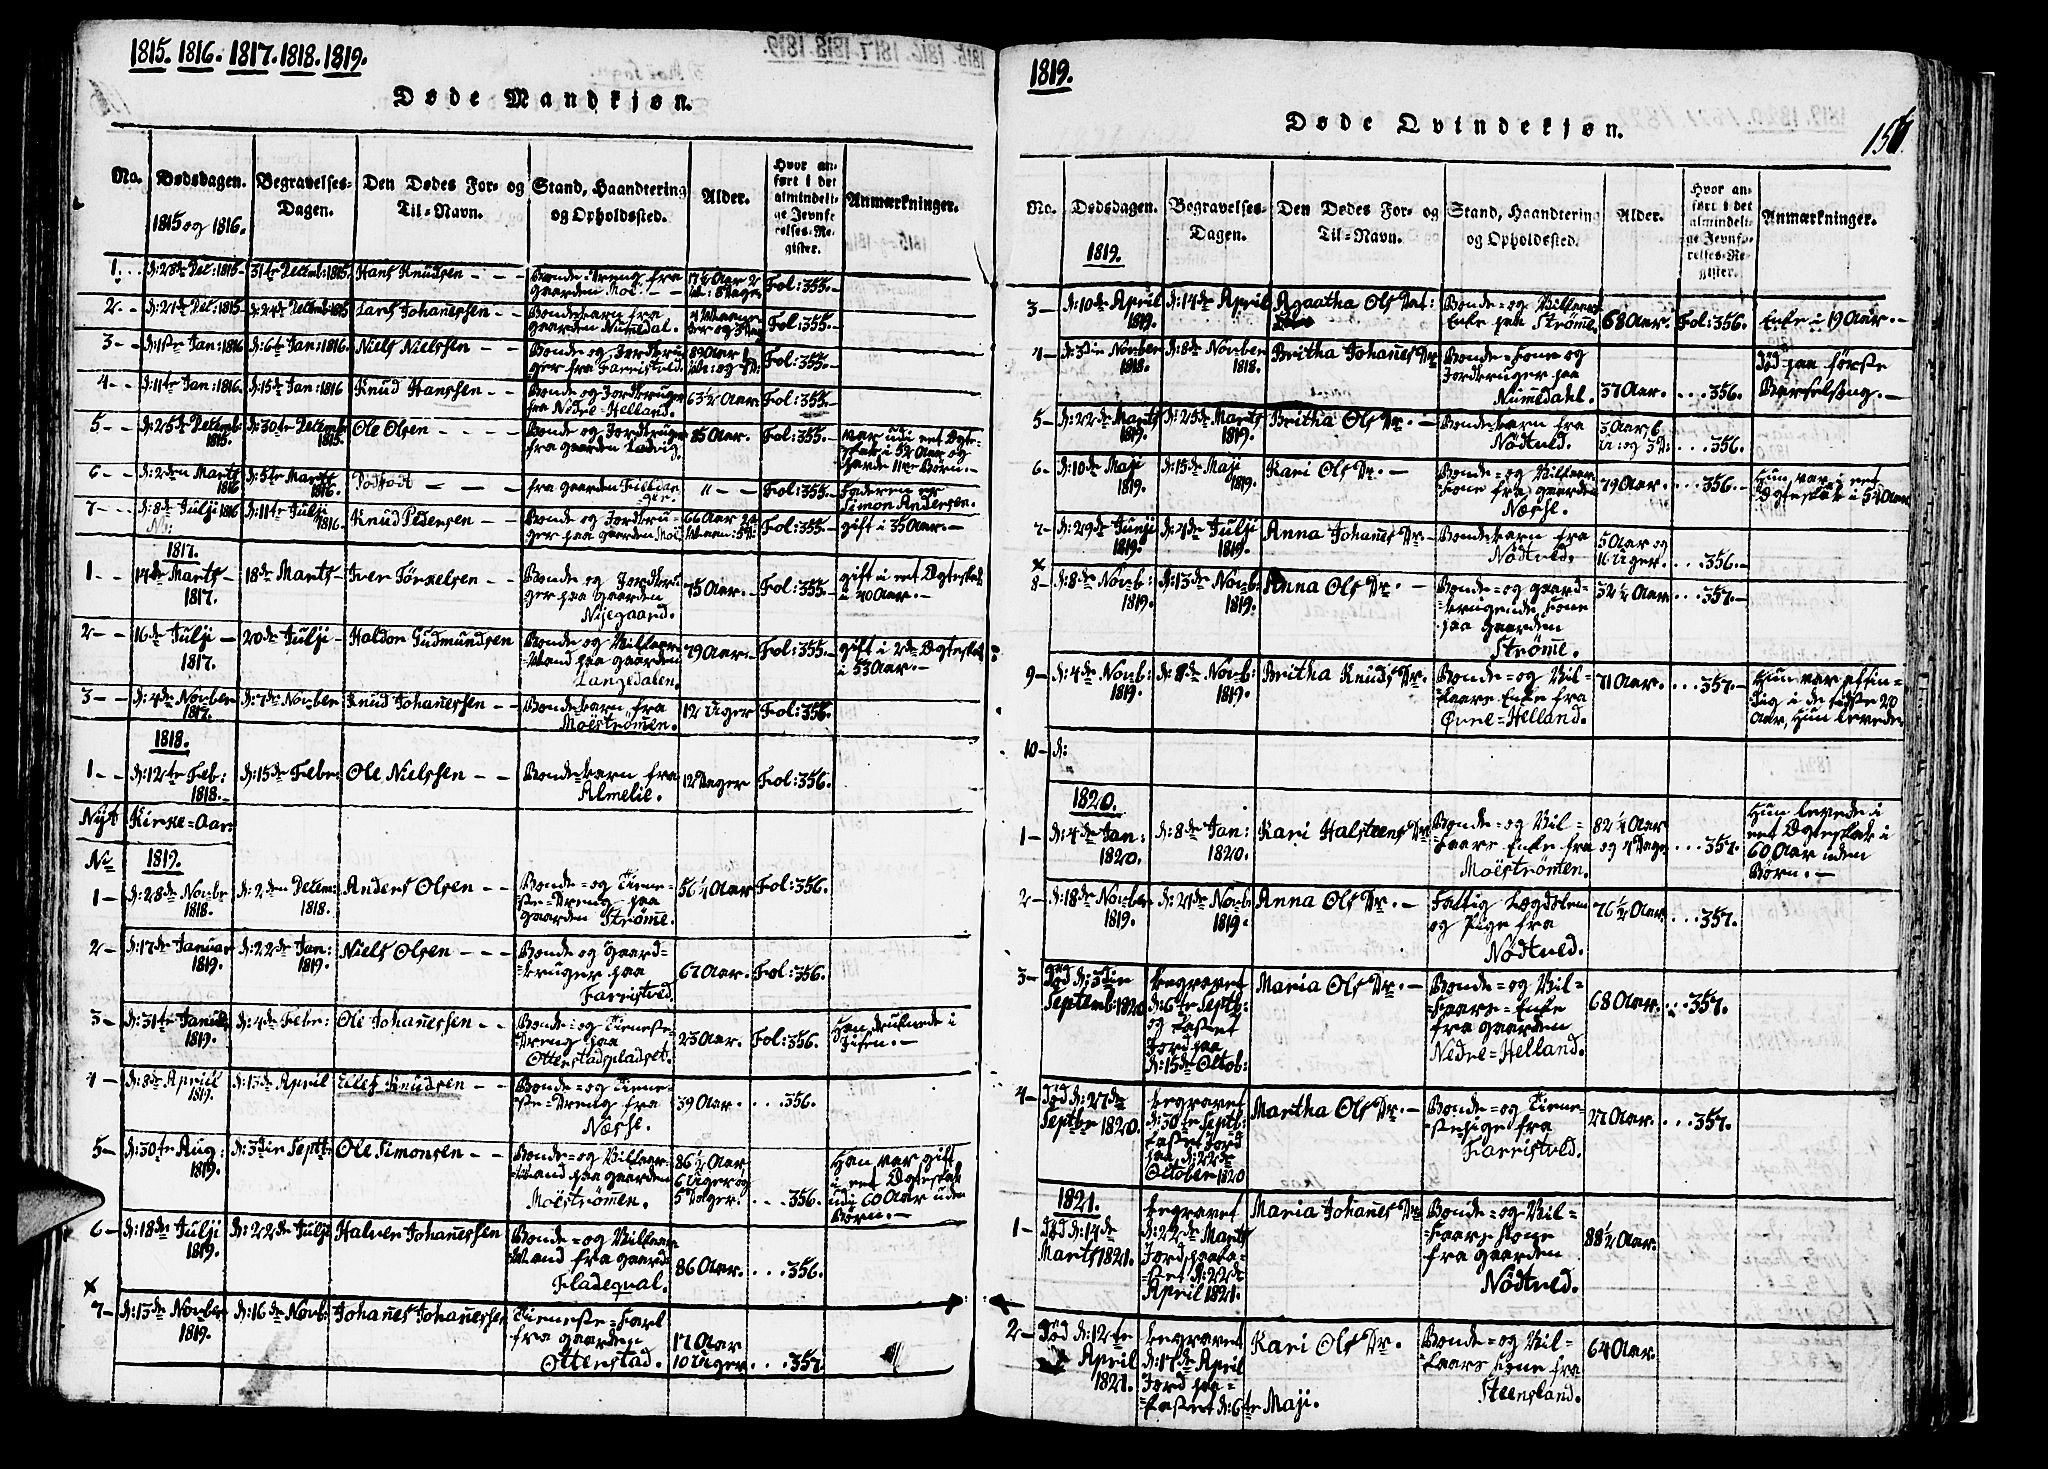 1815. 1816. 1817. 1818. 1819.
Døde Mandkjøn.
No. Dødsdagen. Begravelses-Dagen. Den Dødes For- og Til-Navn. Stand, Haandtering og Opholdssted. Alder. Hvor anført i det almindelige Jevnførelses-Register. Anmærkninger.
1815 og 1816.
1. d: 28de Dec: 1815 31te Decemb: 1815. Hans Knudsen Bonde-Dreng fra gaarden Moë. 17½ Aar Fol: 355.
2 d: 21de Dec: 1815 d: 24de Decemb: 1815 Lars Johanessen Bondebarn fra gaarden Numedal. Fol: 355.
3 d: 1ste Jan: 1816 d: 6te Jan: 1816. Niels Nielssen Bonde og Jordbruger fra Farristved. 89 Aar Fol: 355.
4 d: 11te Jan: 1816. d: 15de Jan: 1816 Knud Hanssen Bonde og Jordbruger fra Nedre-Helland. 63½ Aar Fol: 355.
5 d: 25de Decemb: 1815. d: 30te Decemb 1815. Ole Olsen Bonde og Jordbruger fra gaarden Ladvig. 85 Aar. Fol: 355. var udi eet Ægteskab i 52 Aar og havde 11ve Børn.
6 d: 2den Marts 1816 d: 5te Marts 1816. Dødfødt fra gaarden Fieldanger. " Fol: 355. Faderen er Simon Andersen.
7 d: 8de Julji 1816 d: 11te Julji 1816. Knud Pedersen Bonde og Jordbruger paa gaarden Moë. 66 Aar Fol: 355. gift i 35 Aar.
No: 1817.
1 14de Marts 1817. 18de Marts Iver Törkelsen Bonde og Jordbruger paa gaarden Nyegaard. 75 Aar. Fol: 355. gift i eet Ægteskab i 40 Aar.
2 16de Julji 1817. 20de Julji Haldor Gudmundsen Bonde og Villaars-Mand paa gaarden Langedalen. 79 Aar. Fol: 355. gift i 2de Ægteskab i 53 Aar.
3 d: 4de Novber 1817. d: 7de Novber Knud Johanessen Bondebarn fra Moëströmmen. 12 Uger Fol: 356.
1818.
1 d: 12te Feb: 1818. d: 15de Febr: Ole Nielssen Bondebarn fra Almelie. 12 Dager Fol: 356.
Nyt Kirke-Aar
No 1819.
1 d: 28de Novbr 1818. d: 2den Decem: 1818. Anders Olsen Bonde- og Tieneste-Dreng paa gaarden Ströme. 56¼ Aar Fol: 356.
2 d: 17de Januar 1819. d: 22de Jan: 1819. Niels Olsen Bonde og Gaardbruger paa Farristved. 67 Aar. Fol: 356.
3 d: 31te Januar 1819. d: 4de Febr: Ole Johanessen Bonde- og Tieneste-Dreng paa Otterstadpladset. 23 Aar. Fol: 356. Han druknede i Søen.
4 d: 8de Apriil 1819. d: 13de April Ellef Knudsen Bonde- og Tieneste-Dreng fra Næsse. 39 Aar. 356.
5 d: 30te Aug: 1819. d: 3die Septb: Ole Simonsen Bonde- og Villaars-Mand paa gaarden Moëströmen. 86½ Aar, 6 Uger og 5 Dager. 356. Han var gift i eet Ægteskab udi 60 Aar uden Børn.
6 d: 18de Julji 1819. d: 22de Julji Halvor Johanessen Bonde- og Villaars-Mand fra gaard Fladequal. 86 Aar. 356.
× 7 d: 13de Novber 1819. d: 16de Novb: Johanes Johanessen Tieneste-Karl fra gaarden Otterstad. 17 Aar 10 Uger. 357
1819.
Døde Qvindekjøn.
No. Dødsdagen. Begravelses-Dagen. Den Dødes For- og Til-Navn. Stand, Haandtering og Opholdssted. Alder. Hvor anført i det almindelige Jevnførelses-Register. Anmærkninger.
1819.
3 d: 10de April 1819. d: 14de April Agaatha Ols Dat: Bonde- og Villaars Enke paa Strömme. 68 Aar. Fol: 356. Enke i 19 Aar.
4 d: 3die Novber 1818. d: 8de Novber 1818. Britha Johanes Dr Bonde-Kone og Jordbruger paa Numedahl. 37 Aar. 356. død paa første Barselseng.
5 d: 22de Marts 1819. d: 25de Marts 1819. Britha Ols Dr. Bondebarn fra Nödtved. 3 Aar 6 356.
6 d: 10de Maji 1819. d: 15de Maji 1819. Kari Ols Dr. Bonde- og Villaars Kone fra gaarden Næsse. 79 Aar. 356. Hun var i eet Ægteskab i 54 Aar
7 d: 29de Junji 1819. d: 4de Julji 1819. Anna Johanes Dr. Bondebarn fra Nödtved. 5 Aar og 16 Uger. 356.
× 8 d: 8de Novb: 1819. d: 13de Novb: 1819. Anna Ols Dr. Bonde- og gaardbrugende Kone paa gaarden Ströme. 32½ Aar 357.
9 d: 4de Novb: 1819. d: 8de Novb: 1819. Britha Knuds Dr. Bonde- og Villaars Enke fra Övre-Helland. 71 Aar. 357. Hun var affindig i de sidste 20 Aar, hun levede
10 d:
1820.
1 d: 4de Jan: 1820. d: 8de Jan: 1820. Kari Halsteens Dr Bonde- og Villaars Enke fra Moëströmen. 82¼ Aar og 4 Dage 357. Hun levede i eet Ægteskab i 60 Aar uden Børn.
2 d: 18de Novber 1819. d: 21de Novb: 1819. Anna Ols Dr. Fattig Lægdslem og Pige fra Nödtved. 76½ Aar 357.
3 Død d: 3die Septemb: 1820 begravet d: 6te Septb: og kastet Jord paa d: 15de Octob: Maria Ols Dr. Bonde- og Villaars-Enke fra gaarden Nedre-Helland. 68 Aar. 357.
4 Død d: 27de Septbr 1820. begravet d: 30te Septb: kastet Jord paa d: 22de October 1820 Martha Ols Dr. Bonde- og Tienestepige fra Farristved. 27 Aar. 357.
1821.
1 Død d: 14de Marts 1821. begravet d: 22de Marts Jord paakastet d: 22de April 1821. Maria Johanes Dr Bonde- og Villaars Kone fra gaarden Nödtved. 88½ Aar.
2 Død d: 12te April 1821. begravet d: 17de April Jord paakastet d: 6te Maji. Kari Ols Dr. Bonde- og Villaars Kone fra Steensland. 64 Aar.